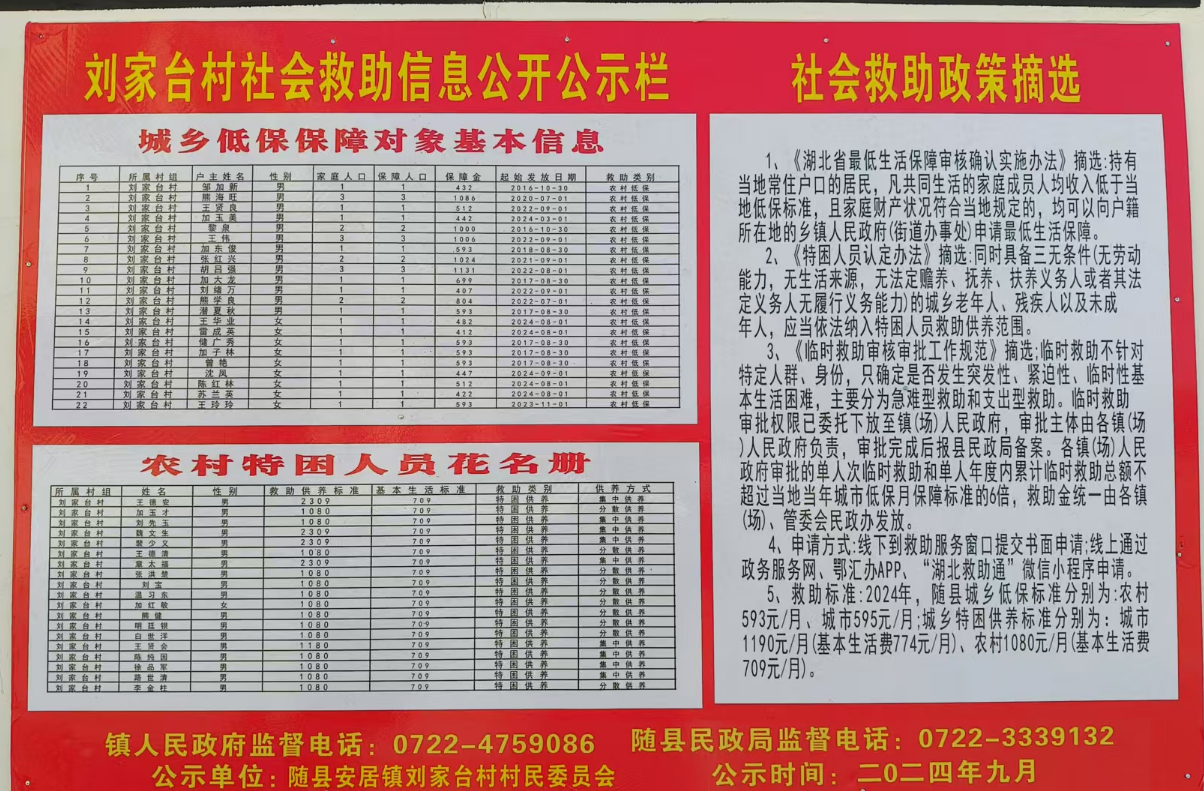 刘家台村社会救助信息公开公示栏
城乡低保保障对象基本信息
序号 所属村组 户主姓名 性别 家庭人口 保障人口 保障金 起始发放日期 救助类别
1 刘家台村 邹加新 男 1 1 432 2016-10-30 农村低保
2 刘家台村 熊海旺 男 3 3 1086 2020-07-01 农村低保
3 刘家台村 王贤良 男 1 1 512 2022-09-01 农村低保
4 刘家台村 加玉美 男 1 1 442 2024-03-01 农村低保
5 刘家台村 黎泉 男 2 2 1000 2016-10-30 农村低保
6 刘家台村 王伟 男 3 3 1006 2022-09-01 农村低保
7 刘家台村 加东俊 男 1 1 593 2018-08-30 农村低保
8 刘家台村 张红兴 男 2 2 1024 2021-09-01 农村低保
9 刘家台村 胡吕强 男 3 3 1131 2022-08-01 农村低保
10 刘家台村 加大龙 男 1 1 699 2017-08-30 农村低保
11 刘家台村 刘绪万 男 1 1 407 2022-09-01 农村低保
12 刘家台村 熊学良 男 2 2 804 2022-07-01 农村低保
13 刘家台村 潜夏秋 男 1 1 593 2017-08-30 农村低保
14 刘家台村 王华业 女 1 1 482 2024-08-01 农村低保
15 刘家台村 雷成英 女 1 1 412 2024-08-01 农村低保
16 刘家台村 储广秀 女 1 1 593 2017-08-30 农村低保
17 刘家台村 加子林 女 1 1 593 2017-08-30 农村低保
18 刘家台村 曾艳 女 1 1 593 2017-08-30 农村低保
19 刘家台村 沈凤 女 1 1 447 2024-09-01 农村低保
20 刘家台村 陈红林 女 1 1 512 2024-08-01 农村低保
21 刘家台村 苏兰英 女 1 1 422 2024-08-01 农村低保
22 刘家台村 王玲玲 女 1 1 593 2023-11-01 农村低保
农村特困人员花名册
所属村组 姓名 性别 救助供养标准 基本生活标准 救助类别 供养方式
刘家台村 王德安 男 2309 709 特困供养 集中供养
刘家台村 加玉才 男 1080 709 特困供养 分散供养
刘家台村 刘先玉 男 1080 709 特困供养 集中供养
刘家台村 魏文生 男 2309 709 特困供养 集中供养
刘家台村 少义 男 2309 709 特困供养 集中供养
刘家台村 王德清 男 1080 709 特困供养 分散供养
刘家台村 太福 男 2309 709 特困供养 集中供养
刘家台村 张洪楚 男 1080 709 特困供养 分散供养
刘家台村 刘宝 男 1080 709 特困供养 分散供养
刘家台村 温习东 男 1080 709 特困供养 分散供养
刘家台村 加红敏 女 1080 709 特困供养 分散供养
刘家台村 熊健 男 1080 709 特困供养 分散供养
刘家台村 明廷银 男 1080 709 特困供养 分散供养
刘家台村 白世洋 男 1080 709 特困供养 分散供养
刘家台村 王贤会 男 1180 709 特困供养 集中供养
刘家台村 陈纯国 男 1080 709 特困供养 集中供养
刘家台村 徐品军 男 1080 709 特困供养 集中供养
刘家台村 路世清 男 1080 709 特困供养 集中供养
刘家台村 李金柱 男 1080 709 特困供养 分散供养
社会救助政策摘选
1、《湖北省最低生活保障审核确认实施办法》摘选:持有
当地常住户口的居民，凡共同生活的家庭成员人均收入低于当
地低保标准，且家庭财产状况符合当地规定的，均可以向户籍
所在地的乡镇人民政府(街道办事处)申请最低生活保障。
2、《特困人员认定办法》摘选:同时具备三无条件(无劳动
能力，无生活来源，无法定赡养、抚养、扶养义务人或者其法
定义务人无履行义务能力)的城乡老年人、残疾人以及未成
年人，应当依法纳入特困人员救助供养范围。
3、《临时救助审核审批工作规范》摘选;临时救助不针对
特定人群、身份，只确定是否发生突发性、紧迫性、临时性基
本生活困难，主要分为急难型救助和支出型救助。临时救助
审批权限已委托下放至镇(场)人民政府，审批主体由各镇(场
)人民政府负责，审批完成后报县民政局备案。各镇(场)人民
政府审批的单人次临时救助和单人年度内累计临时救助总额不
超过当地当年城市低保月保障标准的6倍，救助金统一由各镇
(场)、管委会民政办发放。
4、申请方式:线下到救助服务窗口提交书面申请;线上通过
政务服务网、鄂汇办APP、“湖北救助通”微信小程序申请。
5、救助标准:2024年，随县城乡低保标准分别为:农村
593元/月、城市595元/月;城乡特困供养标准分别为：城市
1190元/月(基本生活费774元/月)、农村1080元/月(基本生活费
709元/月)。
镇人民政府监督电话：0722-4759086 随县民政局监督电话：0722-3339132
公示单位：随县安居镇刘家台村村民委员会 公示时间：二0二四年九月